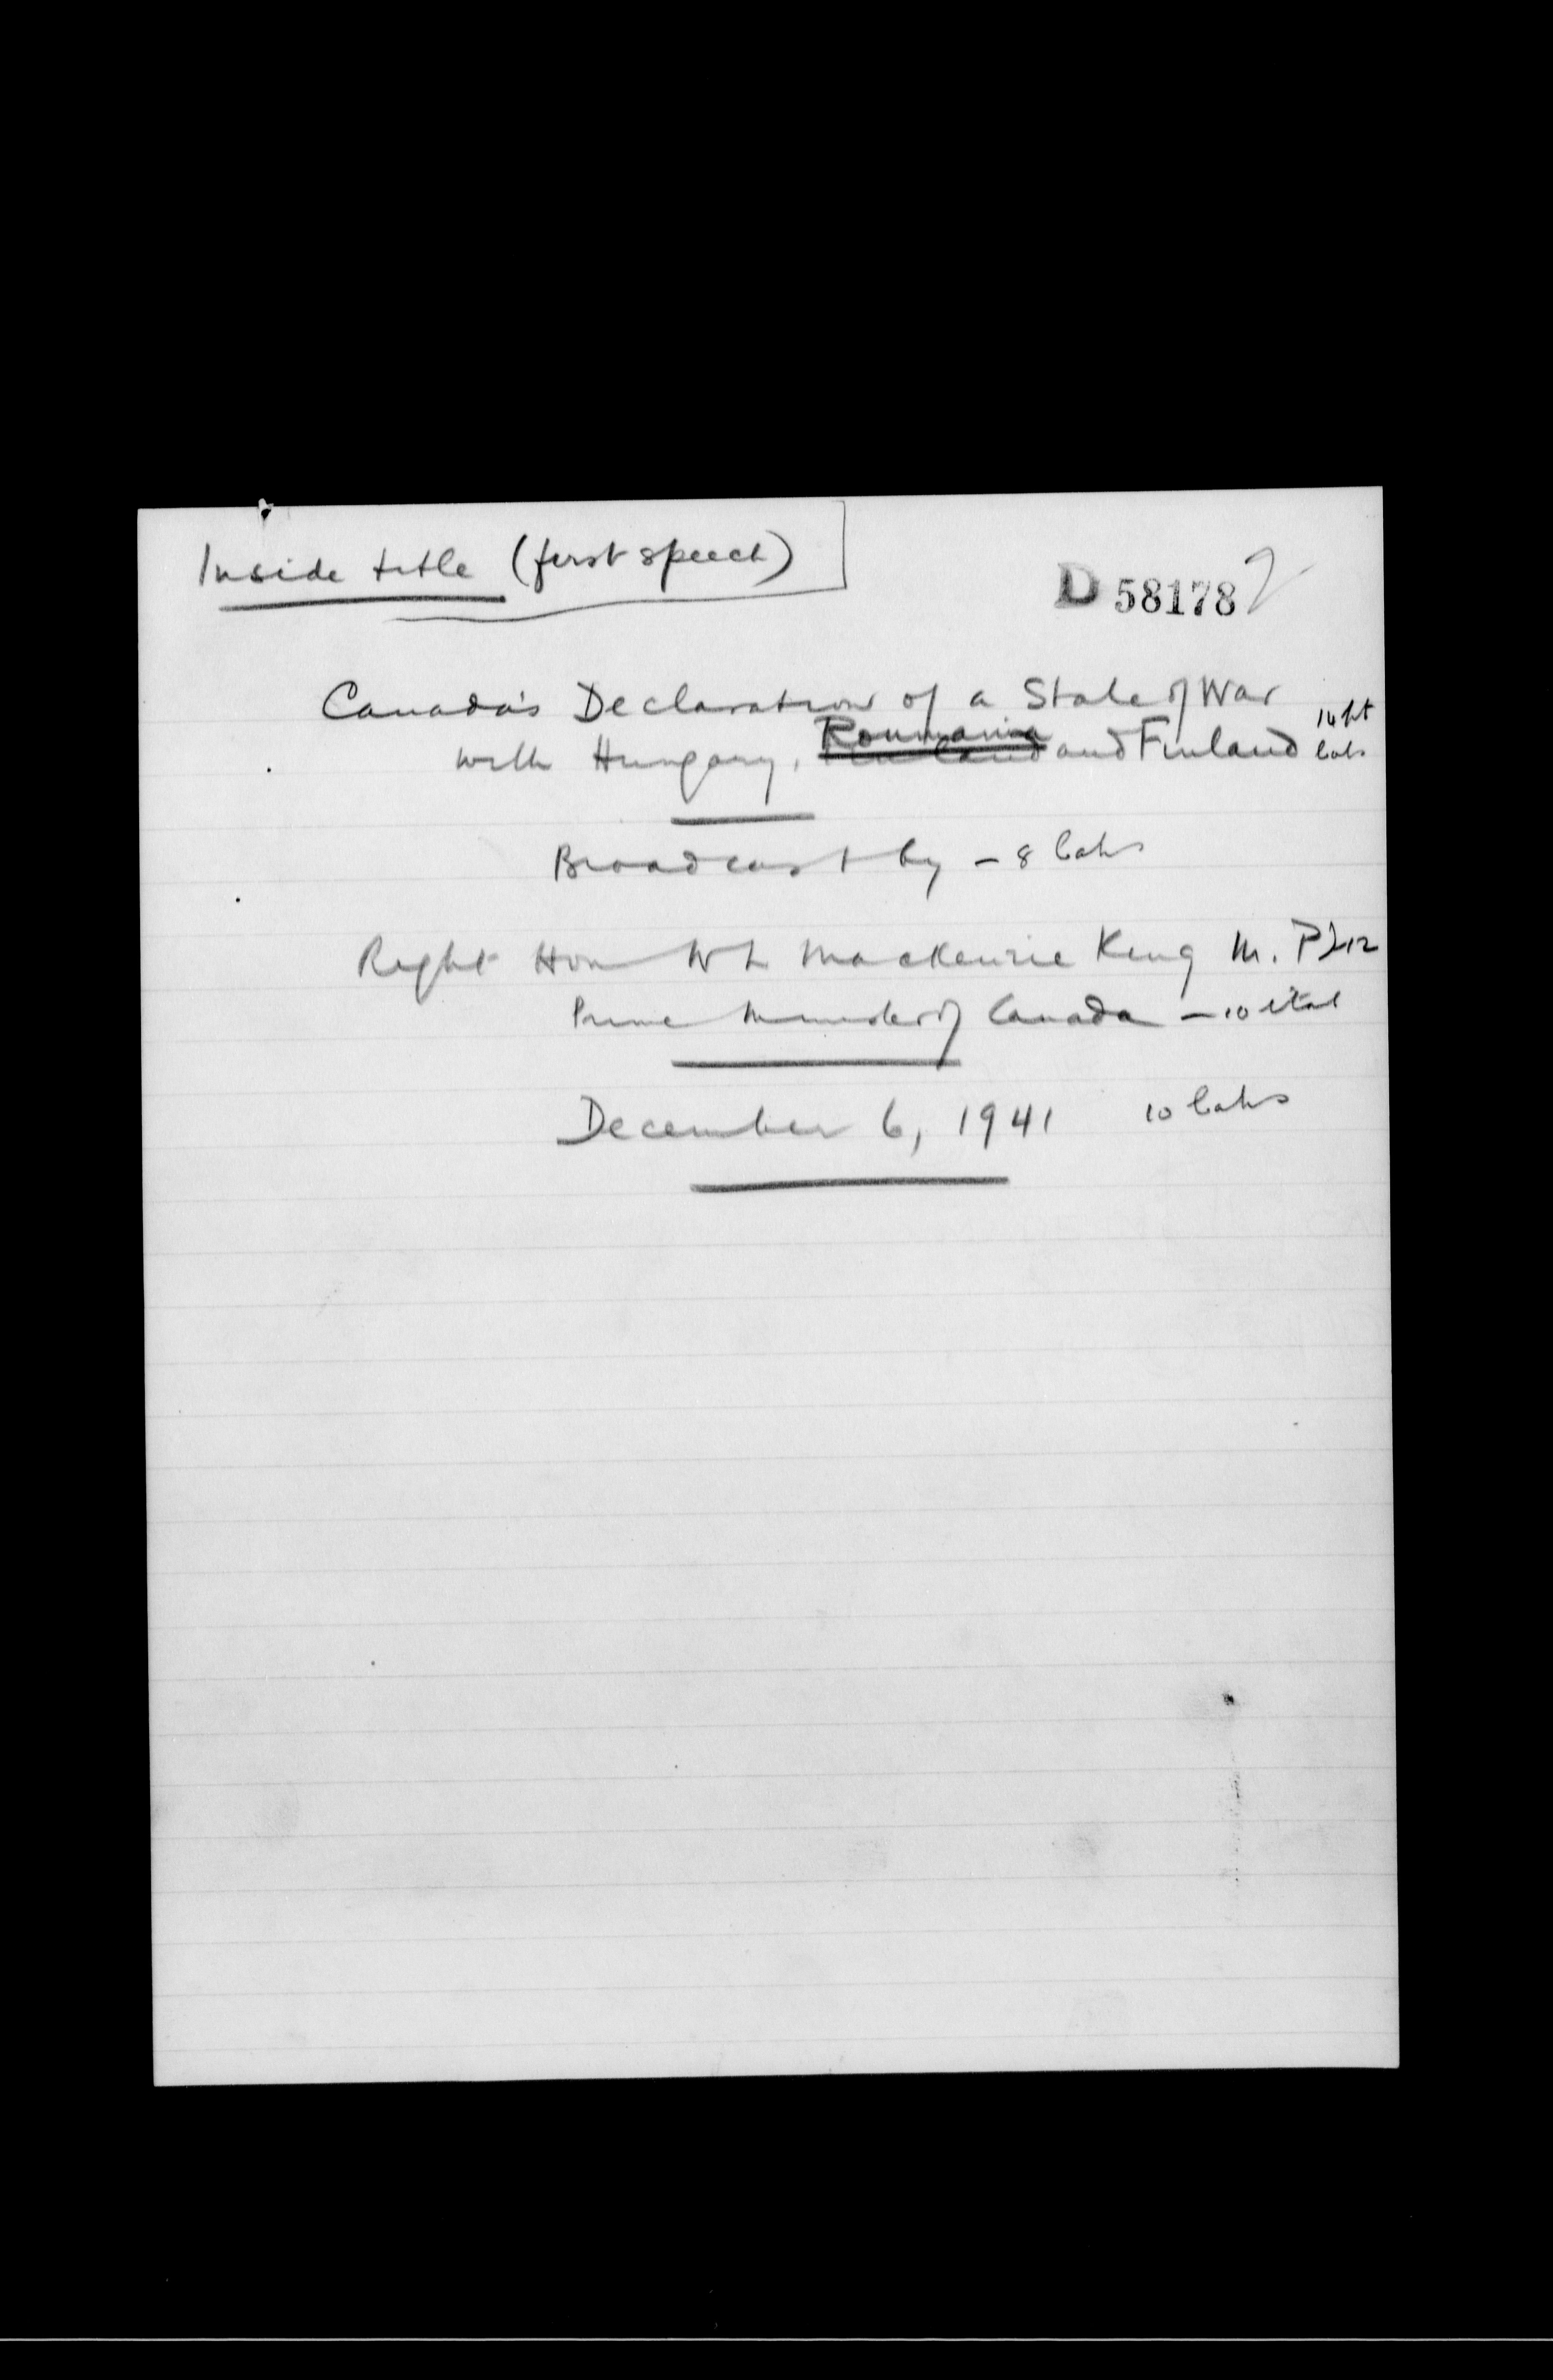 Inside title (first speech)
D 58178
Canada's Declaration of a State of War
14 pt
with Hungary, Roumania and Finland caps
Broadcast by – 8 caps
Right Hon W L Mackenzie King M. P. 12
Prime Minister of Canada – 10 ital
December 6, 1941 10 caps